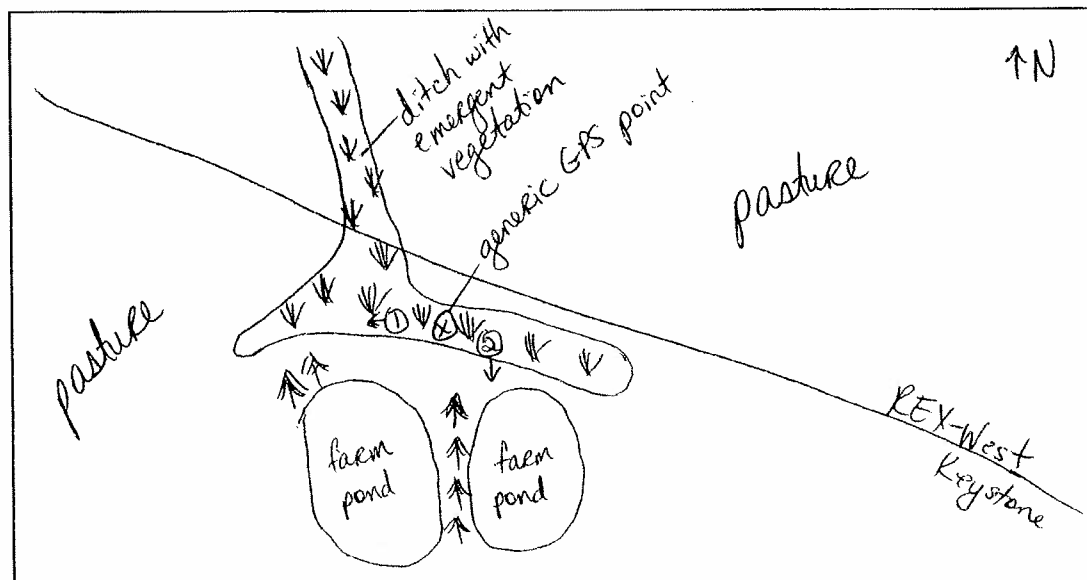 ↑N
ditch with
emergent
vegetation
generic GPS point
pasture
pasture
1
X
2
farm
pond
farm
pond
REX-West
Keystone